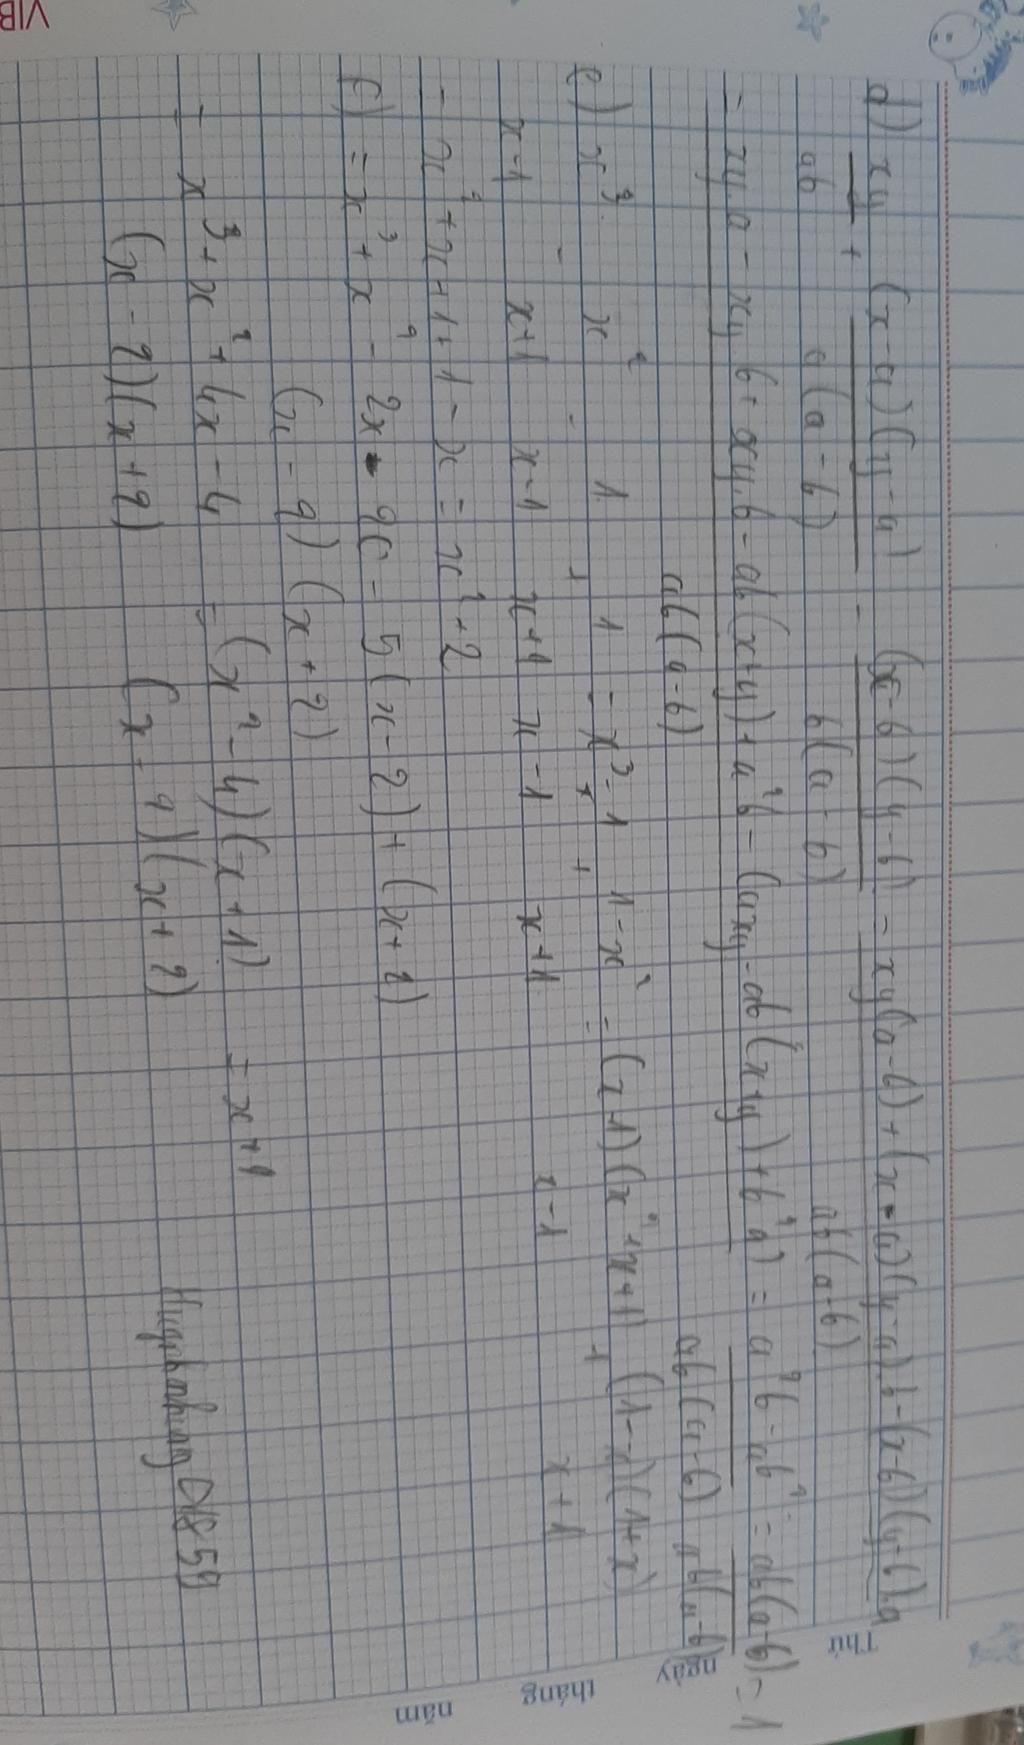 VIB
Thứ
ngày
tháng
năm
d) xy/ab + (x-a)(y-a)/a(a-b) - (x-b)(y-b)/b(a-b) = xy(a-b)+(x-a)(y-a).b-(x-b)(y-b).a/ab(a-b)
= xy.a-xy.b+xy.b-ab(x+y)+a²b-(axy-ab(x+y)+b²a)/ab(a-b) = a²b-ab²/ab(a-b) = ab(a-b)/ab(a-b) = 1
e) x³/x-1 - x²/x+1 - 1/x-1 + 1/x+1 = x³-1/x-1 + 1-x²/x+1 = (x-1)(x²+x+1)/x-1 + (1-x)(1+x)/x+1
= x²+x+1+1-x = x²+2
f) = x³+x²-2x-20-5(x-2)+(x+2)/(x-2)(x+2)
= x³+x²+4x-4/(x-2)(x+2) = (x²-4)(x+1)/(x-2)(x+2) = x+1